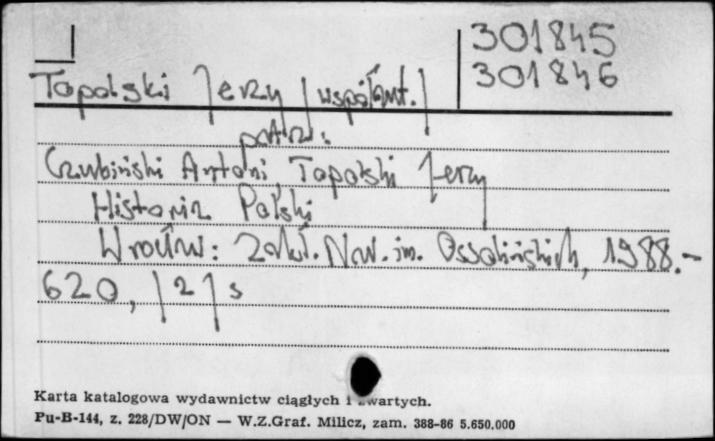 301845
301846
Topolski Jerzy /współaut./
patrz:
Czubiński Antoni Topolski Jerzy
Historia Polski
Wrocław: Zakł. Nar. im. Ossolińskich, 1988.-
620, /2/ s
Karta katalogowa wydawnictw ciągłych i zwartych.
Pu-B-144, z. 228/DW/ON — W.Z.Graf. Milicz, zam. 388-86 5.650.000